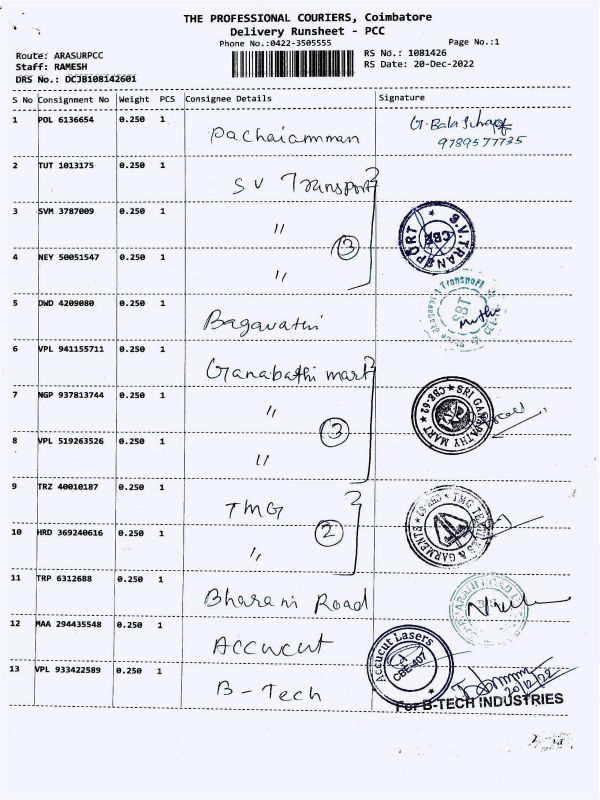 THE PROFESSIONAL COURIERS, Coimbatore
Delivery Runsheet - PCC
Phone No.:0422-3505555
Page No.:1
Route: ARASURPCC
Staff: RAMESH
DRS No.: DCJB108142601
RS No.: 1081426
RS Date: 20-Dec-2022
S No Consignment No Weight PCS Consignee Details Signature
1 POL 6136654 0.250 1 Pachaiamman
9789577735
2 TUT 1013175 0.250 1 SV Transport
3 SVM 3787009 0.250 1 " 3 S.V.TRANSPORT CBE
4 NEY 50051547 0.250 1 "
5 DWD 4209080 0.250 1 Bagavathi SBT
6 VPL 941155711 0.250 1 Ganabathi mart
7 NGP 937813744 0.250 1 " 3 SRI GANAPATHY MART CBE-62
8 VPL 519263526 0.250 1 "
9 TRZ 40010187 0.250 1 TMG
10 HRD 369240616 0.250 1 " 2 TMG TEXTILES & GARMENTS CBE-62
11 TRP 6312688 0.250 1 Bharani Road
12 MAA 294435548 0.250 1 Accucut Accucut Lasers CBE-407
13 VPL 933422589 0.250 1 B-Tech
20/12/22
For B-TECH INDUSTRIES